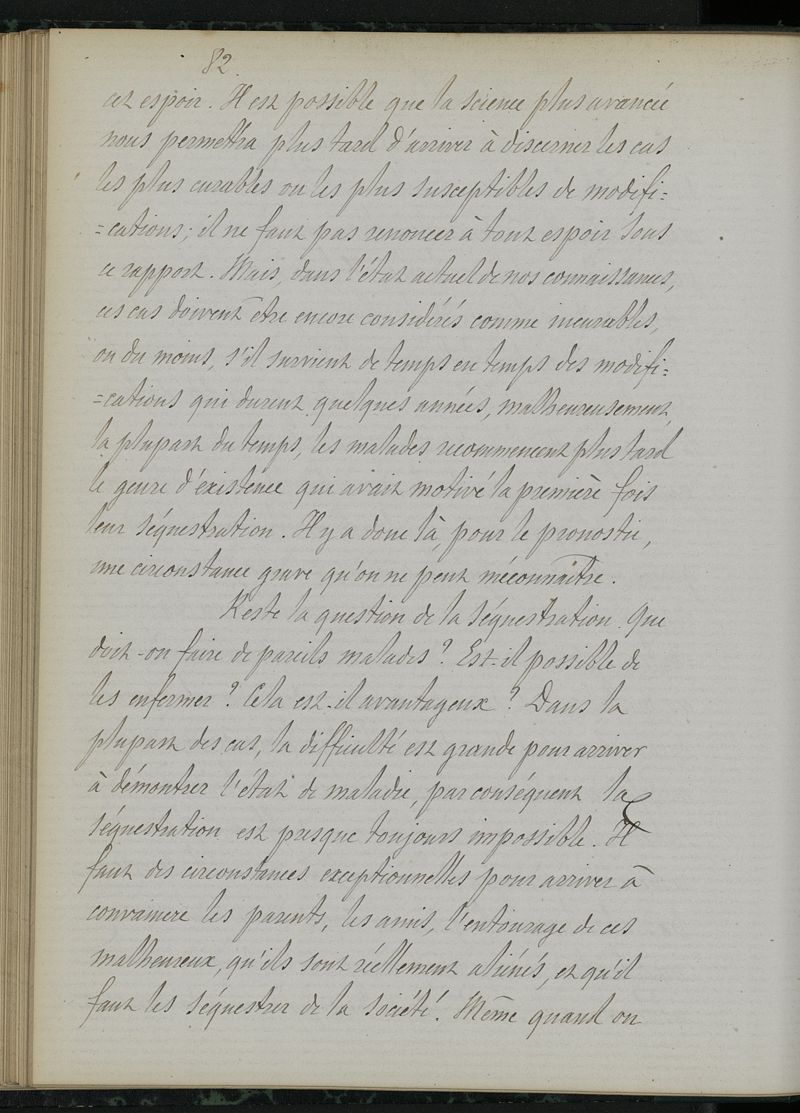 82.
cet espoir. Il est possible que la science plus avancée
nous permettra plus tard d'arriver à discerner les cas
les plus curables ou les plus susceptibles de modifi=
=cations; il ne faut pas renoncer à tout espoir sous
ce rapport. Mais, dans l'état actuel de nos connaissances,
ces cas doivent être encore considérés comme incurables,
ou du moins, s'il survient de temps en temps des modifi=
=cations qui durent quelques années, malheureusement,
la plupart du temps, les malades recommencent plus tard
le genre d'existence qui avait motivé la première fois
leur séquestration. Il y a donc là, pour le pronostic,
une circonstance grave qu'on ne peut méconnaître.
Reste la question de la séquestration. Que
doit-on faire de pareils malades? Est-il possible de
les enfermer? Cela est-il avantageux? Dans la
plupart des cas, la difficulté est grande pour arriver
à démontrer l'état de maladie, par conséquent la
séquestration est presque toujours impossible. Il
faut des circonstances exceptionnelles pour arriver à
convaincre les parents, les amis, l'entourage de ces
malheureux, qu'ils sont réellement aliénés, et qu'il
faut les séquestrer de la société. Même quand on